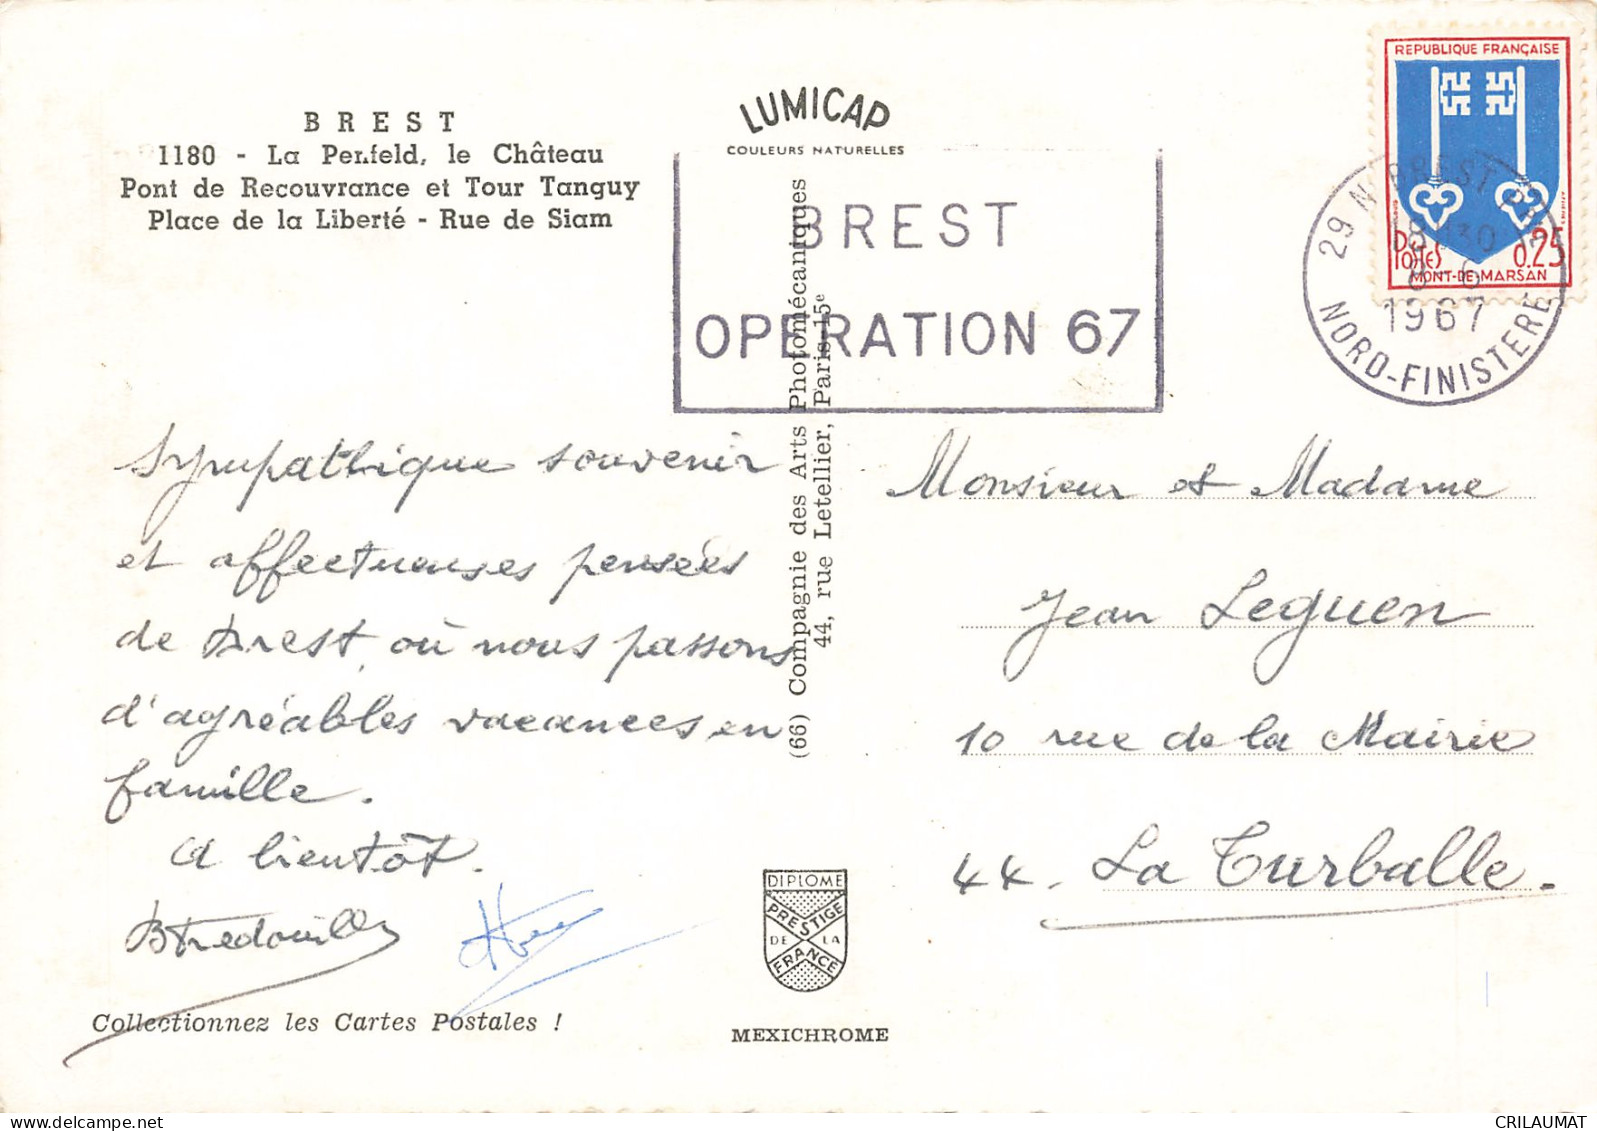 BREST
1180 - La Penfeld, le Château
Pont de Recouvrance et Tour Tanguy
Place de la Liberté - Rue de Siam
LUMICAP
COULEURS NATURELLES
BREST
OPERATION 67
REPUBLIQUE FRANÇAISE
POSTES 0,25
MONT-DE-MARSAN
29 N BREST
1967
NORD-FINISTERE
(66) Compagnie des Arts Photomécaniques
44, rue Letellier, Paris-15e
Sympathique souvenir
et affectueuses pensées
de Brest, où nous passons
d'agréables vacances en
famille.
A bientôt.
Monsieur et Madame
Jean Leguen
10 rue de la Mairie
44. La Turballe.
DIPLOME
PRESTIGE
DE LA
FRANCE
Collectionnez les Cartes Postales !
MEXICHROME
CRILAUMAT